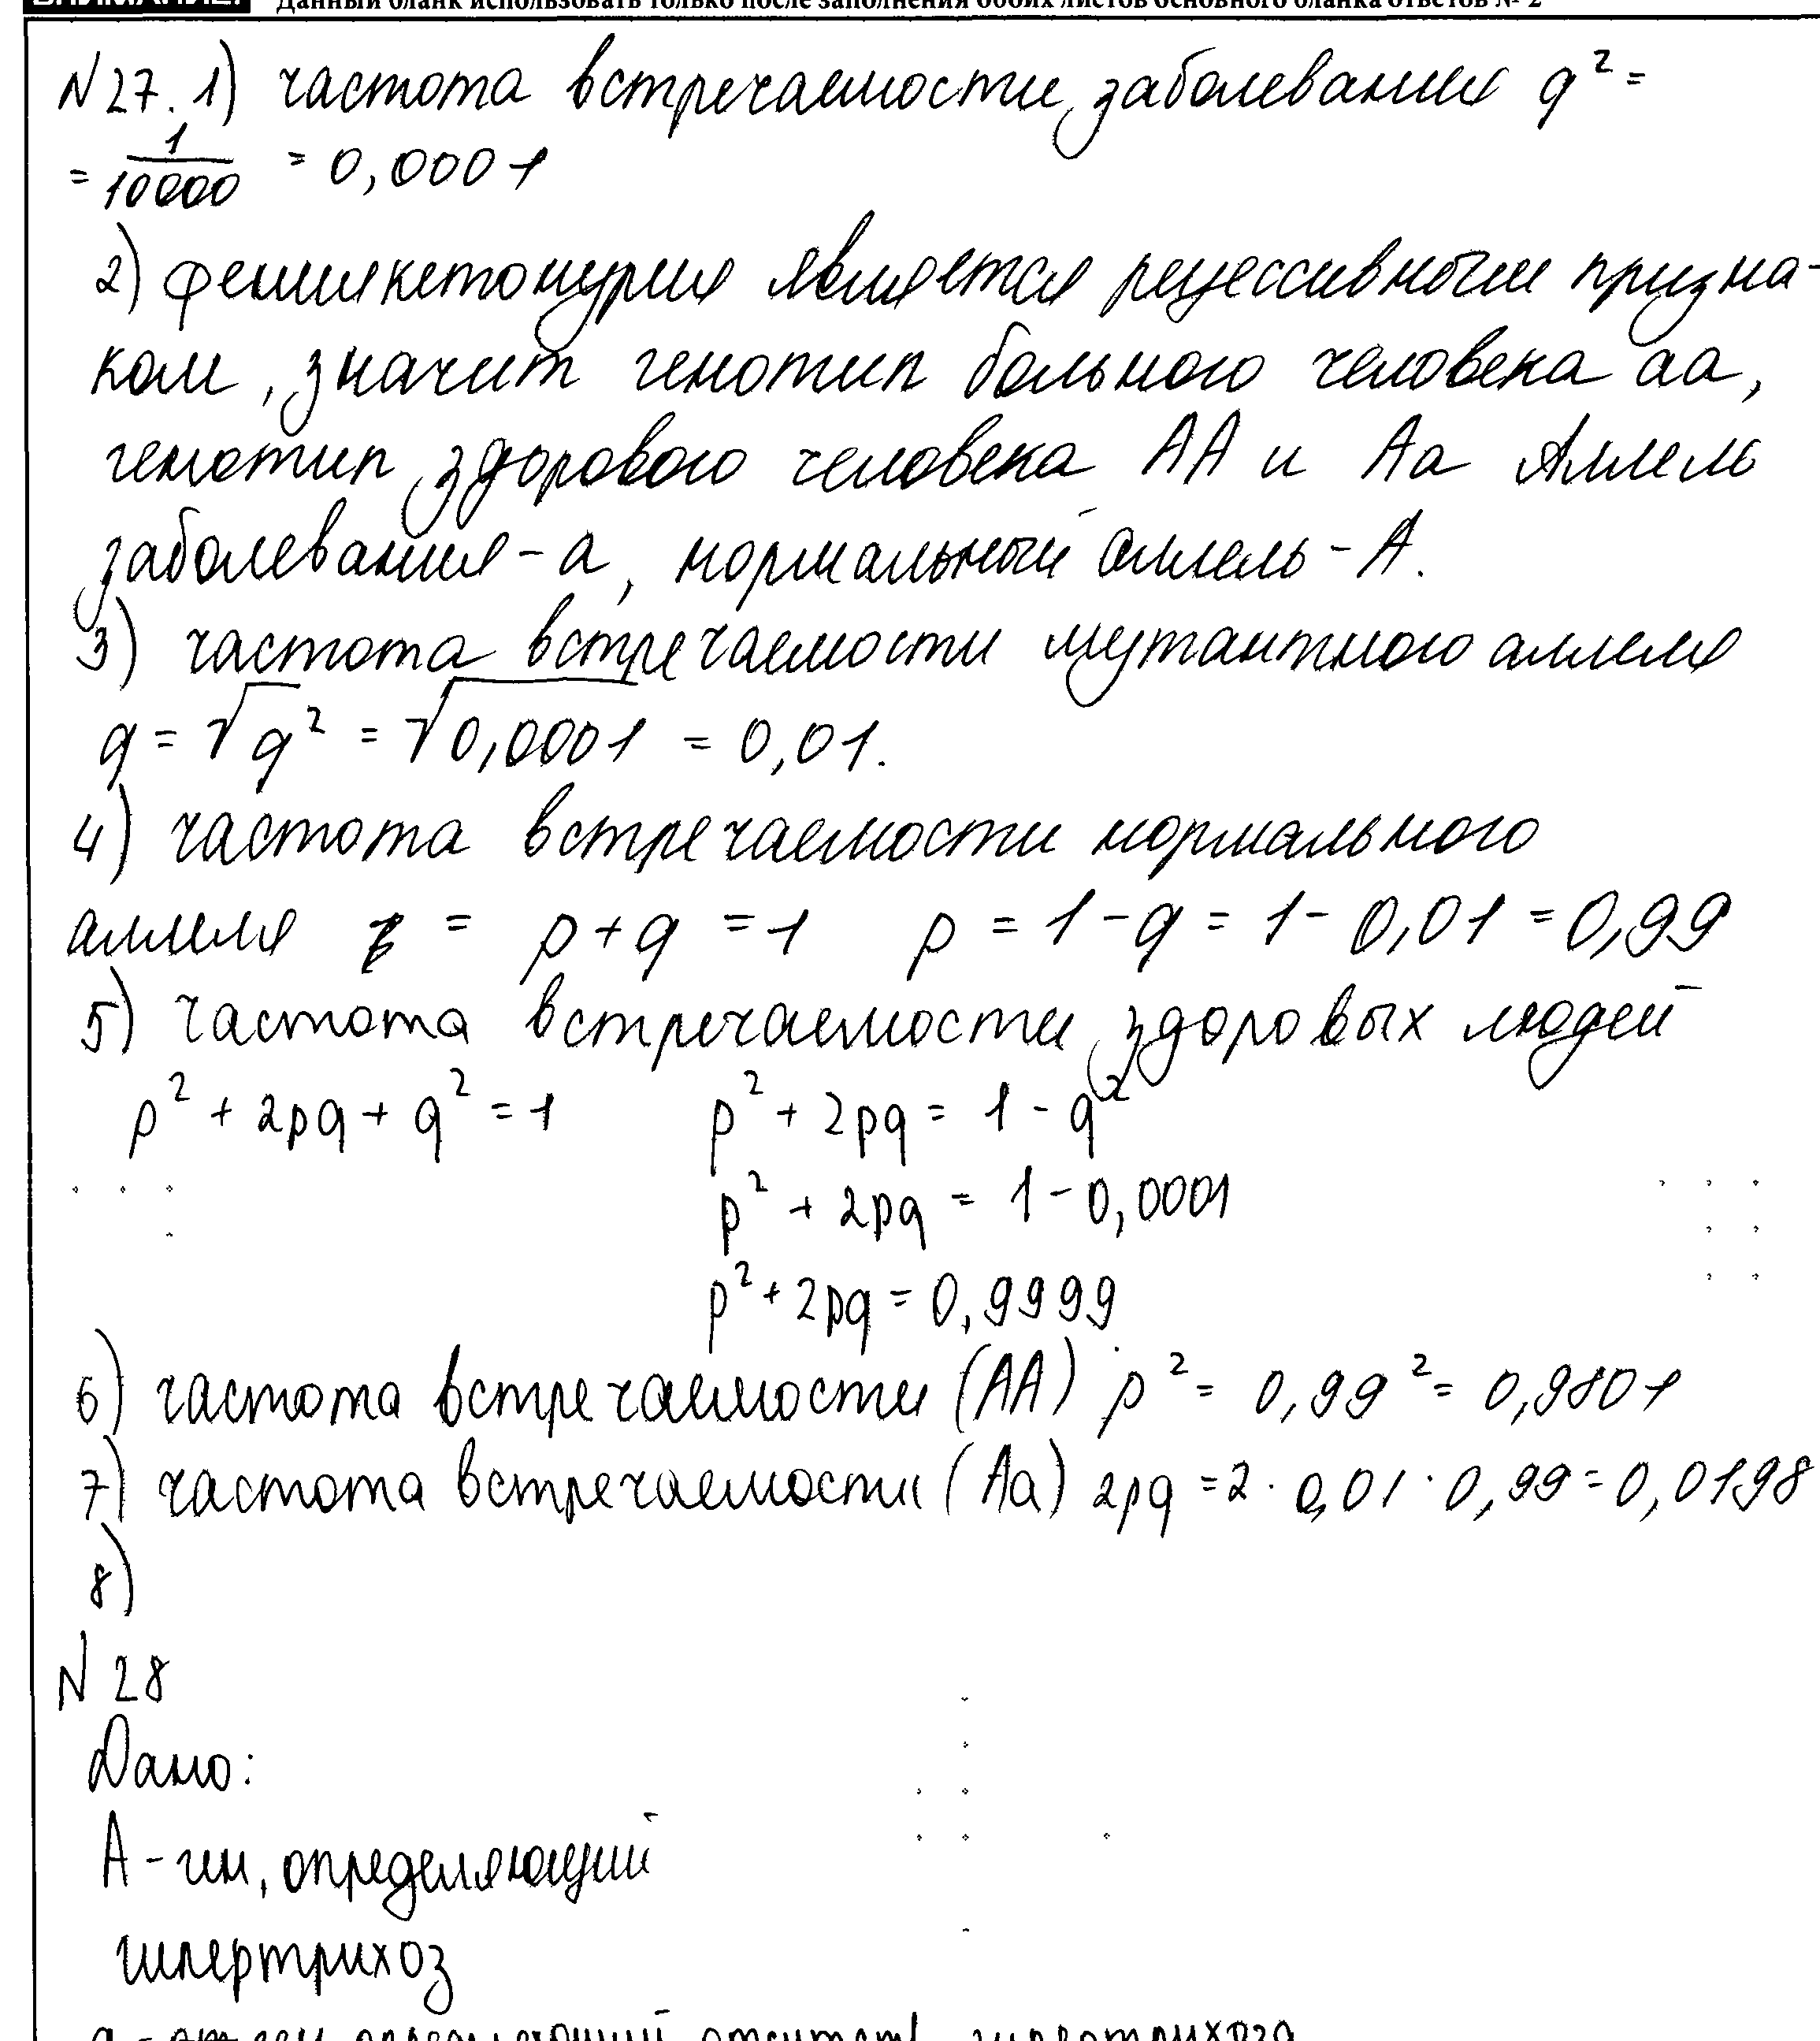 ВНИМАНИЕ! Данный бланк использовать только после заполнения обоих листов основного бланка ответов № 2
N27. 1) частота встречаемости заболевания q² =
= 1/10000 = 0,0001
2) фенилкетонурия является рецессивным призна-
ком, значит генотип больного человека аа,
генотип здорового человека АА и Аа Аллель
заболевания - а, нормальный аллель - А.
3) частота встречаемости мутантного аллеля
q = √q² = √0,0001 = 0,01.
4) частота встречаемости нормального
аллеля = p + q = 1 p = 1 - q = 1 - 0,01 = 0,99
5) частота встречаемости здоровых людей
p² + 2pq + q² = 1 p² + 2pq = 1 - q²
p² + 2pq = 1 - 0,0001
p² + 2pq = 0,9999
6) частота встречаемости (АА) p² = 0,99² = 0,9801
7) частота встречаемости (Аа) 2pq = 2 · 0,01 · 0,99 = 0,0198
8)
N 28
Дано:
А - ген, определяющий
гипертрихоз
а - ген определяющий отсутств. гипертрихоза